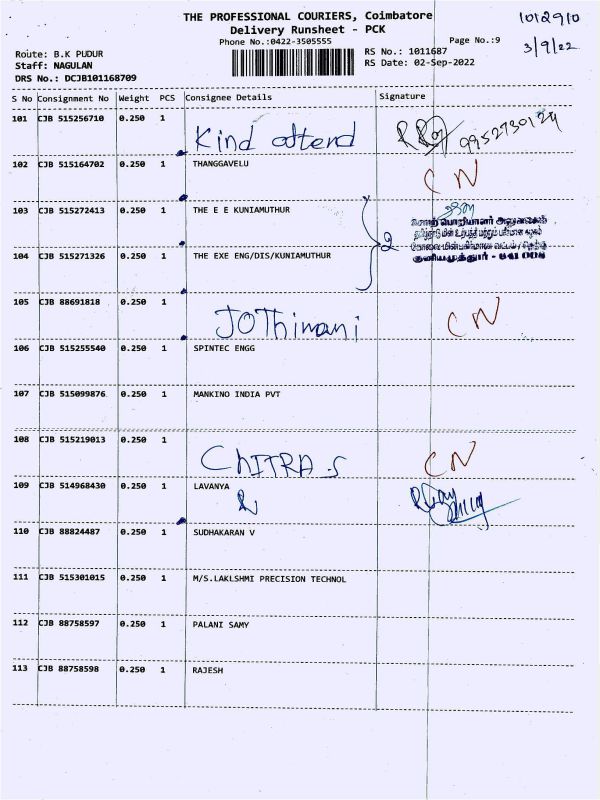 THE PROFESSIONAL COURIERS, Coimbatore
1012910
Delivery Runsheet - PCK
Phone No.:0422-3505555
Page No.:9
3/9/22
Route: B.K PUDUR
RS No.: 1011687
Staff: NAGULAN
RS Date: 02-Sep-2022
DRS No.: DCJB101168709
S No Consignment No Weight PCS Consignee Details Signature
101 CJB 515256710 0.250 1
Kind attend 9952730124
102 CJB 515164702 0.250 1 THANGGAVELU
CN
103 CJB 515272413 0.250 1 THE E E KUNIAMUTHUR
2
104 CJB 515271326 0.250 1 THE EXE ENG/DIS/KUNIAMUTHUR
குனியமுத்தூர் - 641 008
105 CJB 88691818 0.250 1
JOThimani CN
106 CJB 515255540 0.250 1 SPINTEC ENGG
107 CJB 515099876 0.250 1 MANKINO INDIA PVT
108 CJB 515219013 0.250 1
CHITRA.S CN
109 CJB 514968430 0.250 1 LAVANYA
110 CJB 88824487 0.250 1 SUDHAKARAN V
111 CJB 515301015 0.250 1 M/S.LAKLSHMI PRECISION TECHNOL
112 CJB 88758597 0.250 1 PALANI SAMY
113 CJB 88758598 0.250 1 RAJESH